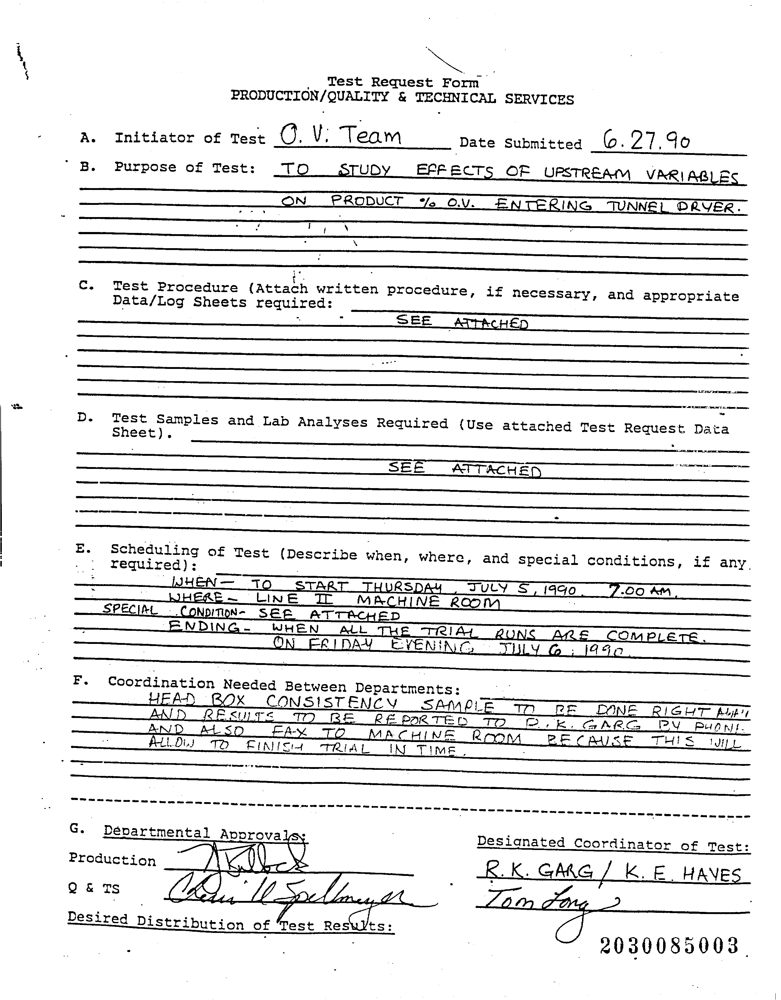 Test Request Form
PRODUCTION/QUALITY & TECHNICAL SERVICES
A. Initiator of Test O.V. Team Date Submitted 6.27.90
B. Purpose of Test: TO STUDY EFFECTS OF UPSTREAM VARIABLES
ON PRODUCT % O.V. ENTERING TUNNEL DRYER.
C. Test Procedure (Attach written procedure, if necessary, and appropriate
Data/Log Sheets required:
SEE ATTACHED
D. Test Samples and Lab Analyses Required (Use attached Test Request Data
Sheet).
SEE ATTACHED
E. Scheduling of Test (Describe when, where, and special conditions, if any
required):
WHEN- TO START THURSDAY, JULY 5, 1990. 7.00 AM.
WHERE- LINE II MACHINE ROOM
SPECIAL CONDITION- SEE ATTACHED
ENDING- WHEN ALL THE TRIAL RUNS ARE COMPLETE.
ON FRIDAY EVENING JULY 6, 1990
F. Coordination Needed Between Departments:
HEAD BOX CONSISTENCY SAMPLE TO BE DONE RIGHT AWAY
AND RESULTS TO BE REPORTED TO R.K. GARG BY PHONE
AND ALSO FAX TO MACHINE ROOM BECAUSE THIS WILL
ALLOW TO FINISH TRIAL IN TIME.
G. Departmental Approvals:
Designated Coordinator of Test:
Production
R.K. GARG / K.E. HAYES
Q & TS
Tom Long
Desired Distribution of Test Results:
2030085003